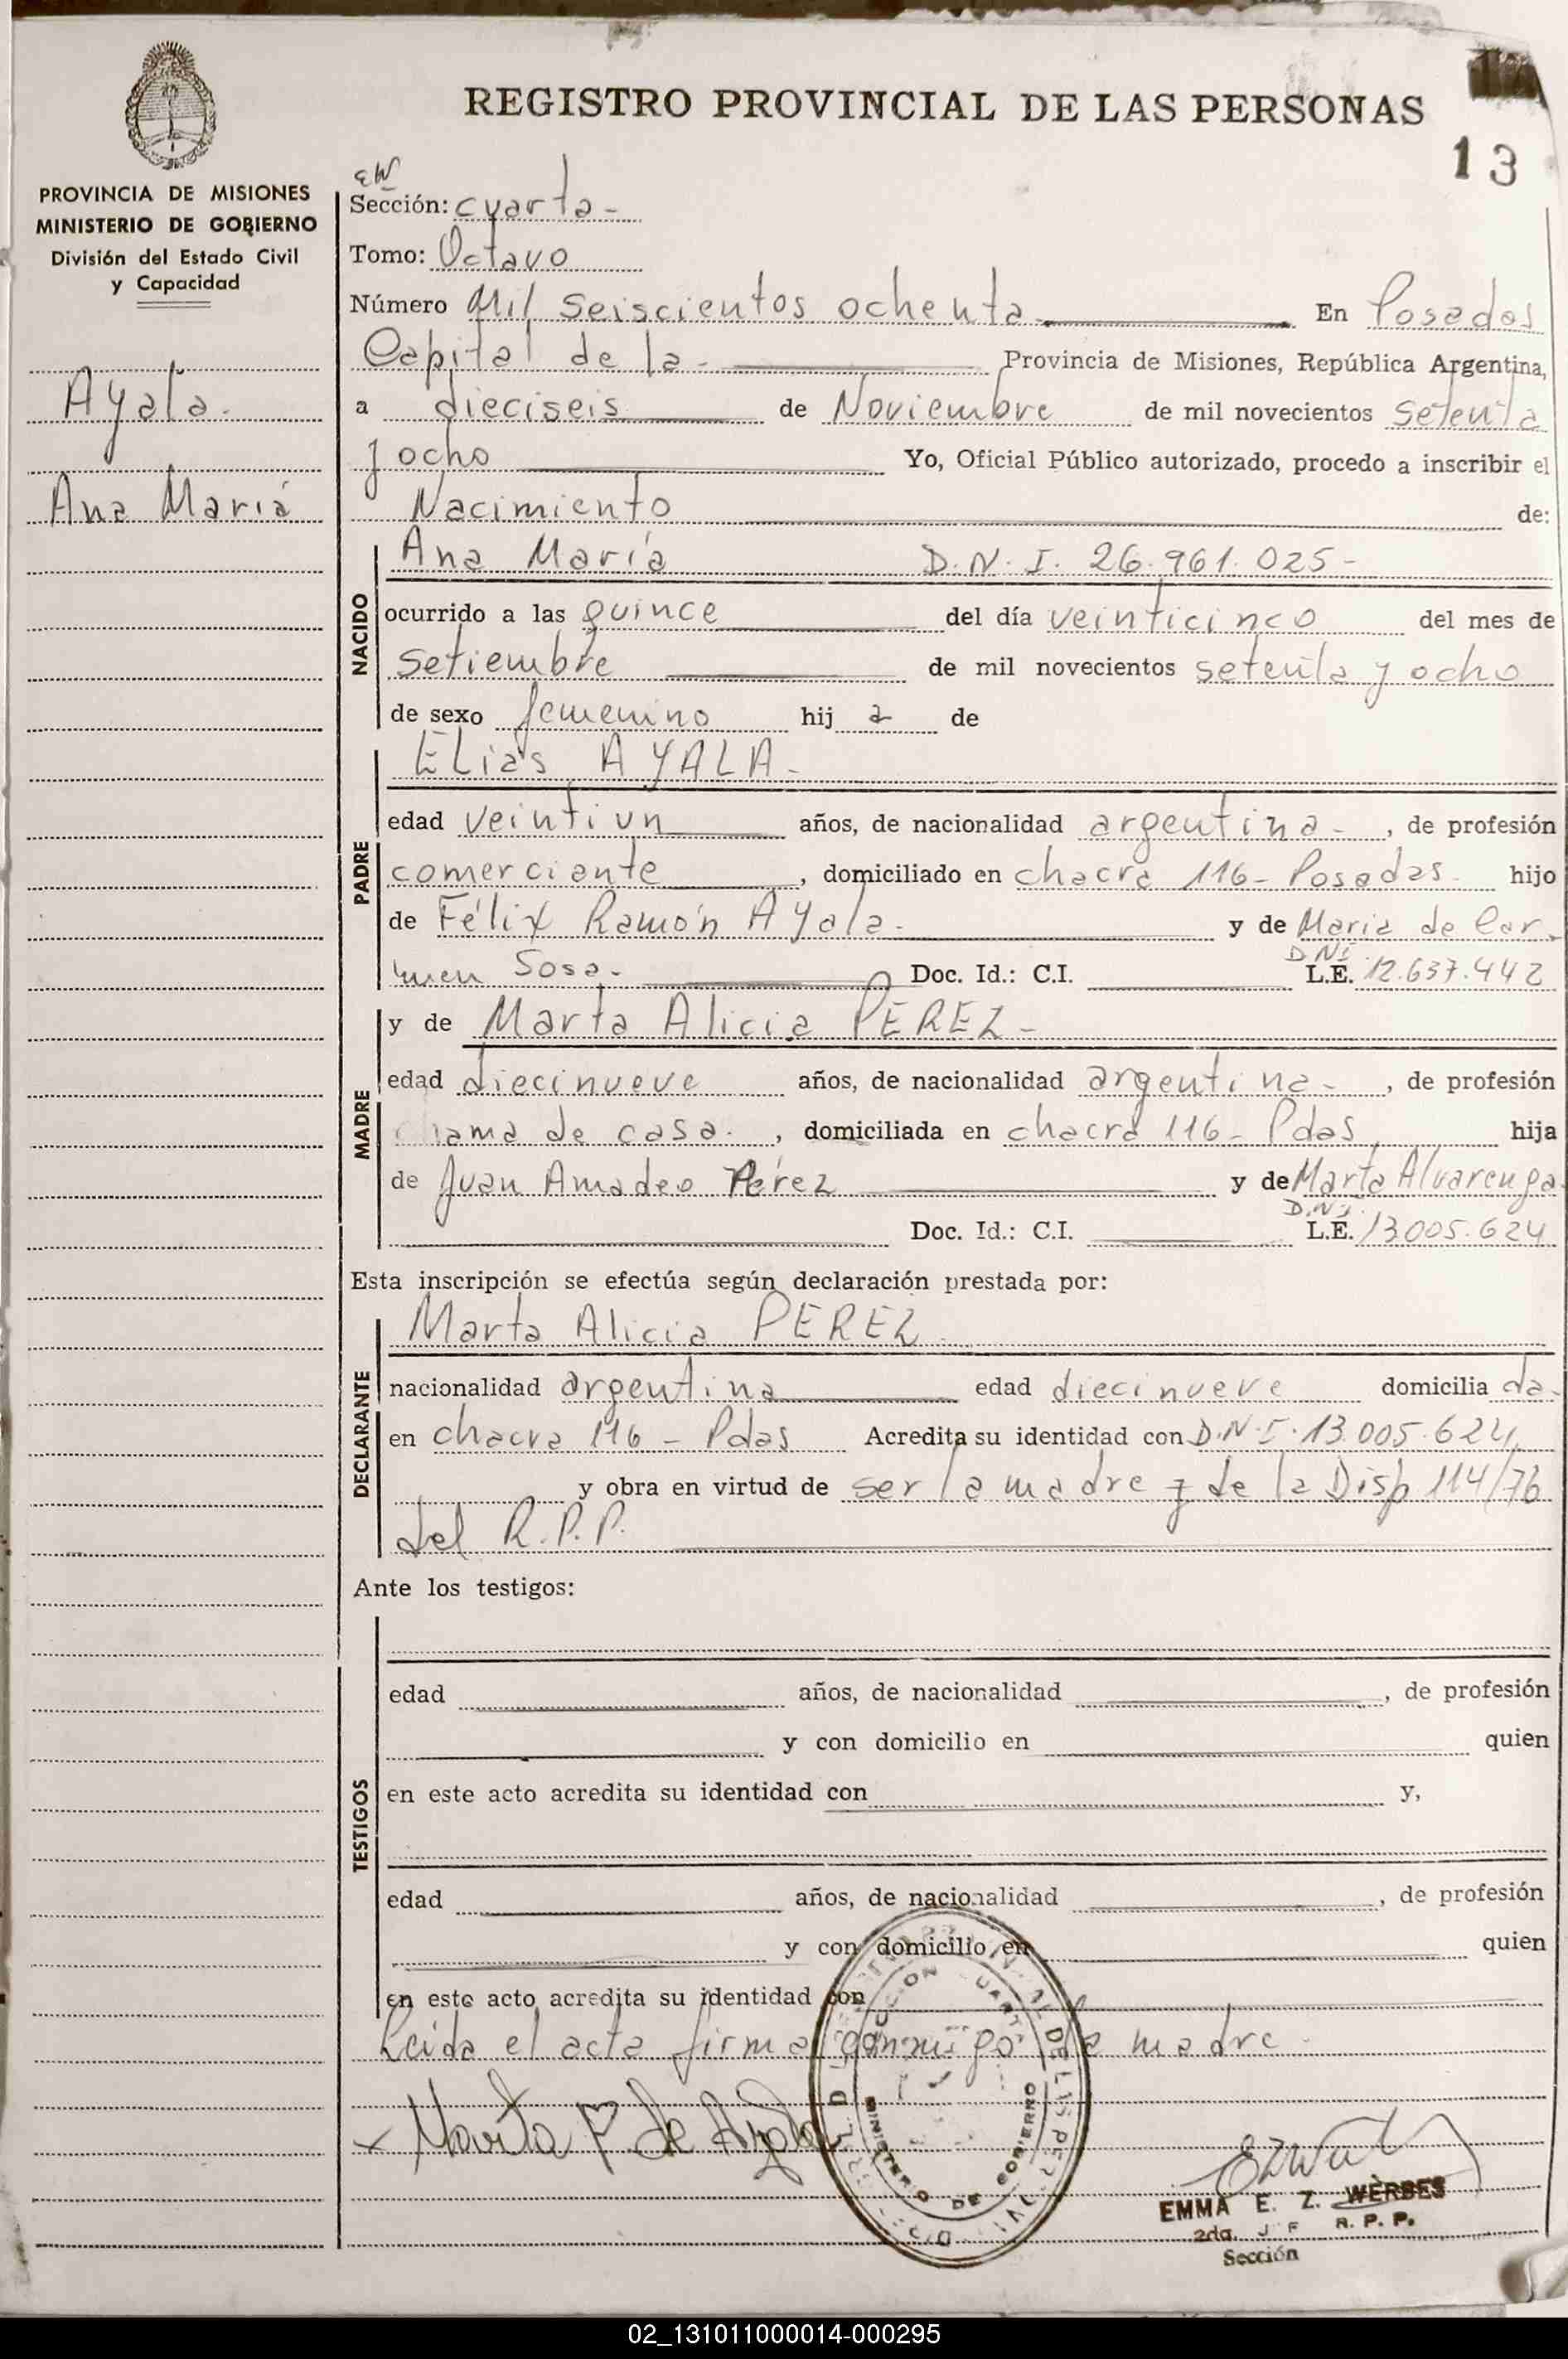 REGISTRO PROVINCIAL DE LAS PERSONAS
13
PROVINCIA DE MISIONES
MINISTERIO DE GOBIERNO
División del Estado Civil
y Capacidad
Ayala.
Ana María
Sección: cuarta-
Tomo: Octavo
Número Mil seiscientos ochenta En Posadas
Capital de la- Provincia de Misiones, República Argentina,
a dieciseis de Noviembre de mil novecientos setenta
y ocho Yo, Oficial Público autorizado, procedo a inscribir el
Nacimiento de:
NACIDO
Ana María D.N.I. 26.961.025-
ocurrido a las quince del día veinticinco del mes de
setiembre de mil novecientos setenta y ocho
de sexo femenino hij a de
PADRE
Elías AYALA-
edad veintiun años, de nacionalidad argentina-, de profesión
comerciante, domiciliado en chacra 116- Posadas- hijo
de Félix Ramón Ayala- y de Maria de Car-
men Sosa- Doc. Id.: C.I. L.E. DNI 12.637.442
MADRE
y de Marta Alicia PEREZ-
edad diecinueve años, de nacionalidad argentina-, de profesión
ama de casa-, domiciliada en chacra 116- Pdas, hija
de Juan Amadeo Pérez y de Marta Alvarenga
Doc. Id.: C.I. L.E. D.N.I. 13.005.624
Esta inscripción se efectúa según declaración prestada por:
DECLARANTE
Marta Alicia PEREZ
nacionalidad argentina edad diecinueve domicilia da-
en chacra 116 - Pdas Acredita su identidad con D.N.I. 13.005.624,
y obra en virtud de ser la madre y de la Disp 114/76
del R.P.P.
Ante los testigos:
TESTIGOS
edad años, de nacionalidad , de profesión
y con domicilio en quien
en este acto acredita su identidad con y,
edad años, de nacionalidad , de profesión
y con domicilio en quien
en este acto acredita su identidad con
Leida el acta firma conmigo la madre-
Marta P de Ayala
MINISTERIO DE GOBIERNO
EMMA E. Z. WÈRBES
2da. J F R. P. P.
Sección
02_131011000014-000295